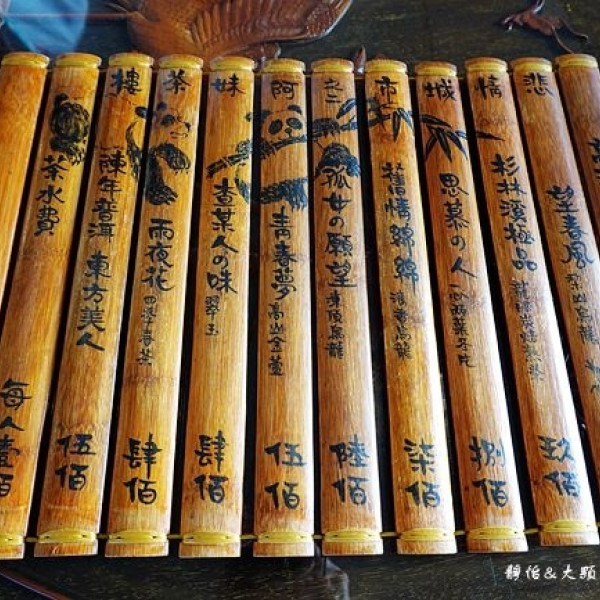 悲情城市之二阿妹茶樓
望春風
梨山烏龍
杉林溪極品
玖佰
思慕の人
一心兩葉冬片
捌佰
舊情綿綿
烏龍
柒佰
孤女の願望
凍頂烏龍
陸佰
青春夢
高山金萱
伍佰
查某人の味
翠玉
肆佰
雨夜花
四季春茶
肆佰
陳年普洱
東方美人
伍佰
茶水費
每人壹佰
靜怡&大顆